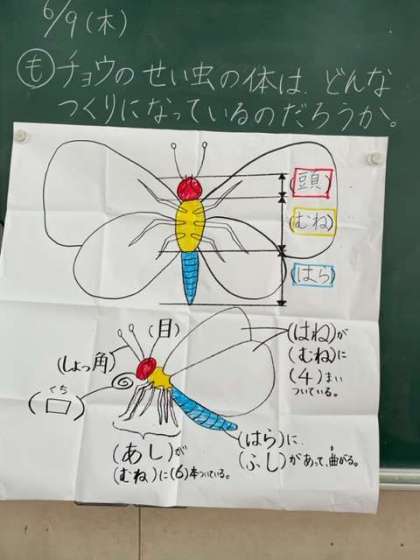 6/9(木)
も チョウのせい虫の体は、どんな
つくりになっているのだろうか。
(頭)
(むね)
(はら)
(目)
(しょっ角)
くち
(口)
(はね)が
(むね)に
(4)まい
ついている。
(あし)が
(むね)に(6)本ついている。
(はら)に
(ふし)があって、曲がる。